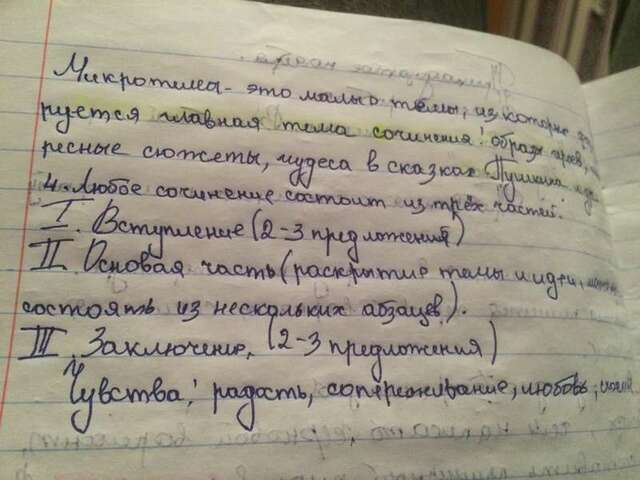 Микротемы - это малые темы, из которых
руется главная тема сочинения: образы героев,
ресные сюжеты, чудеса в сказках Пушкина и др
4. Любое сочинение состоит из трёх частей.
I. Вступление (2-3 предложения)
II. Основая часть (раскрытие темы и идеи,
состоять из нескольких абзацев).
III. Заключение. (2-3 предложения)
Чувства: радость, сопереживание, любовь,